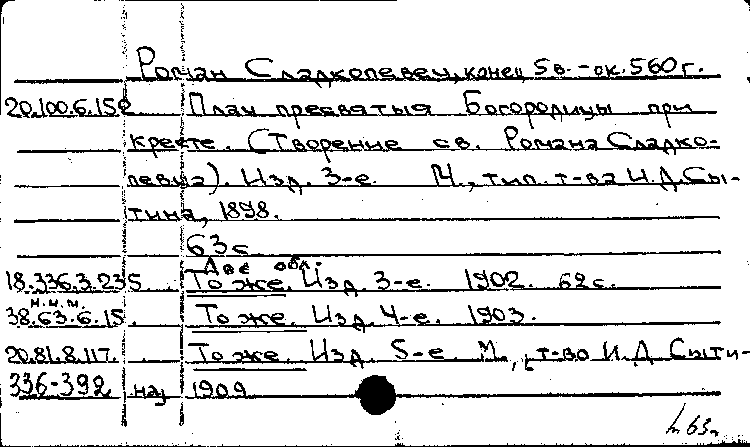 Роман Сладкопевец, конец 5 в. - ок. 560 г.
20.100.6.152 Плач пресвятыя Богородицы при
кресте. (Творение св. Романа Сладко-
певца). Изд. 3-е. М., тип. т-ва И.Д.Сы-
тина, 1898.
63 с
Две обл.
18.336.3.235 То же. Изд. 3-е. 1902. 62 с.
н.и.м.
38.63.6.15 То же. Изд. 4-е. 1903.
20.81.8.117. То же. Изд. 5-е. М., т-во И.Д Сыти-
336-392 на, 1909